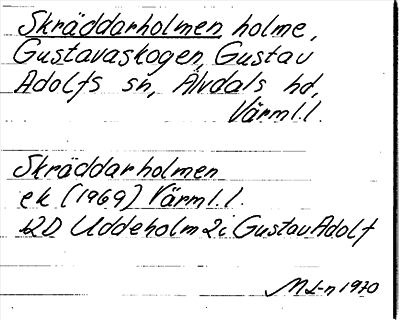 Skräddarholmen, holme,
Gustavaskogen, Gustav
Adolfs sn, Älvdals hd,
Värml.l.
Skräddarholmen
ek (1969) Värml.l.
12D Uddeholm 2i Gustav Adolf
ML-n 1970